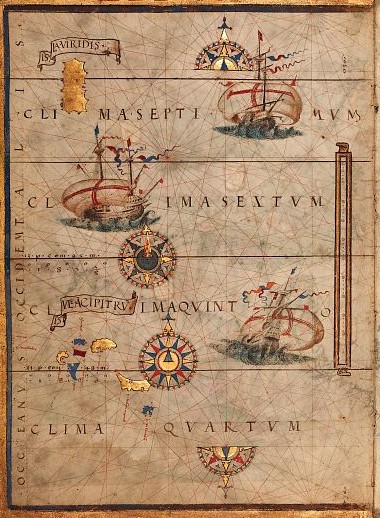 IAVIRIDIS
IS
CLIMA SEPTI MVM
CLIMA SEXTVM
VEACIPITRV
IS
CLIMA QVINTO
CLIMA QVARTVM
OCCEANVS OCCIDEMTALIS